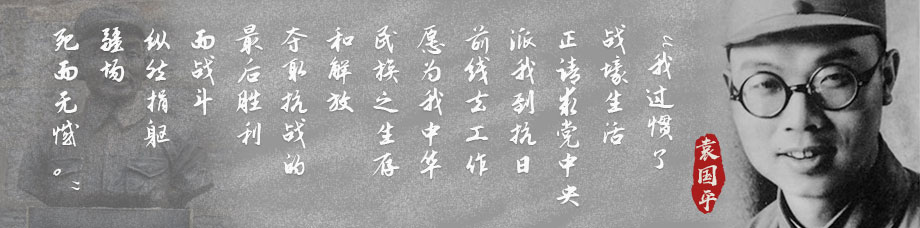 “我过惯了
战壕生活
正请求党中央
派我到抗日
前线去工作
愿为我中华
民族之生存
和解放
夺取抗战的
最后胜利
而战斗
纵然捐躯
疆场
死而无憾。”
袁国平